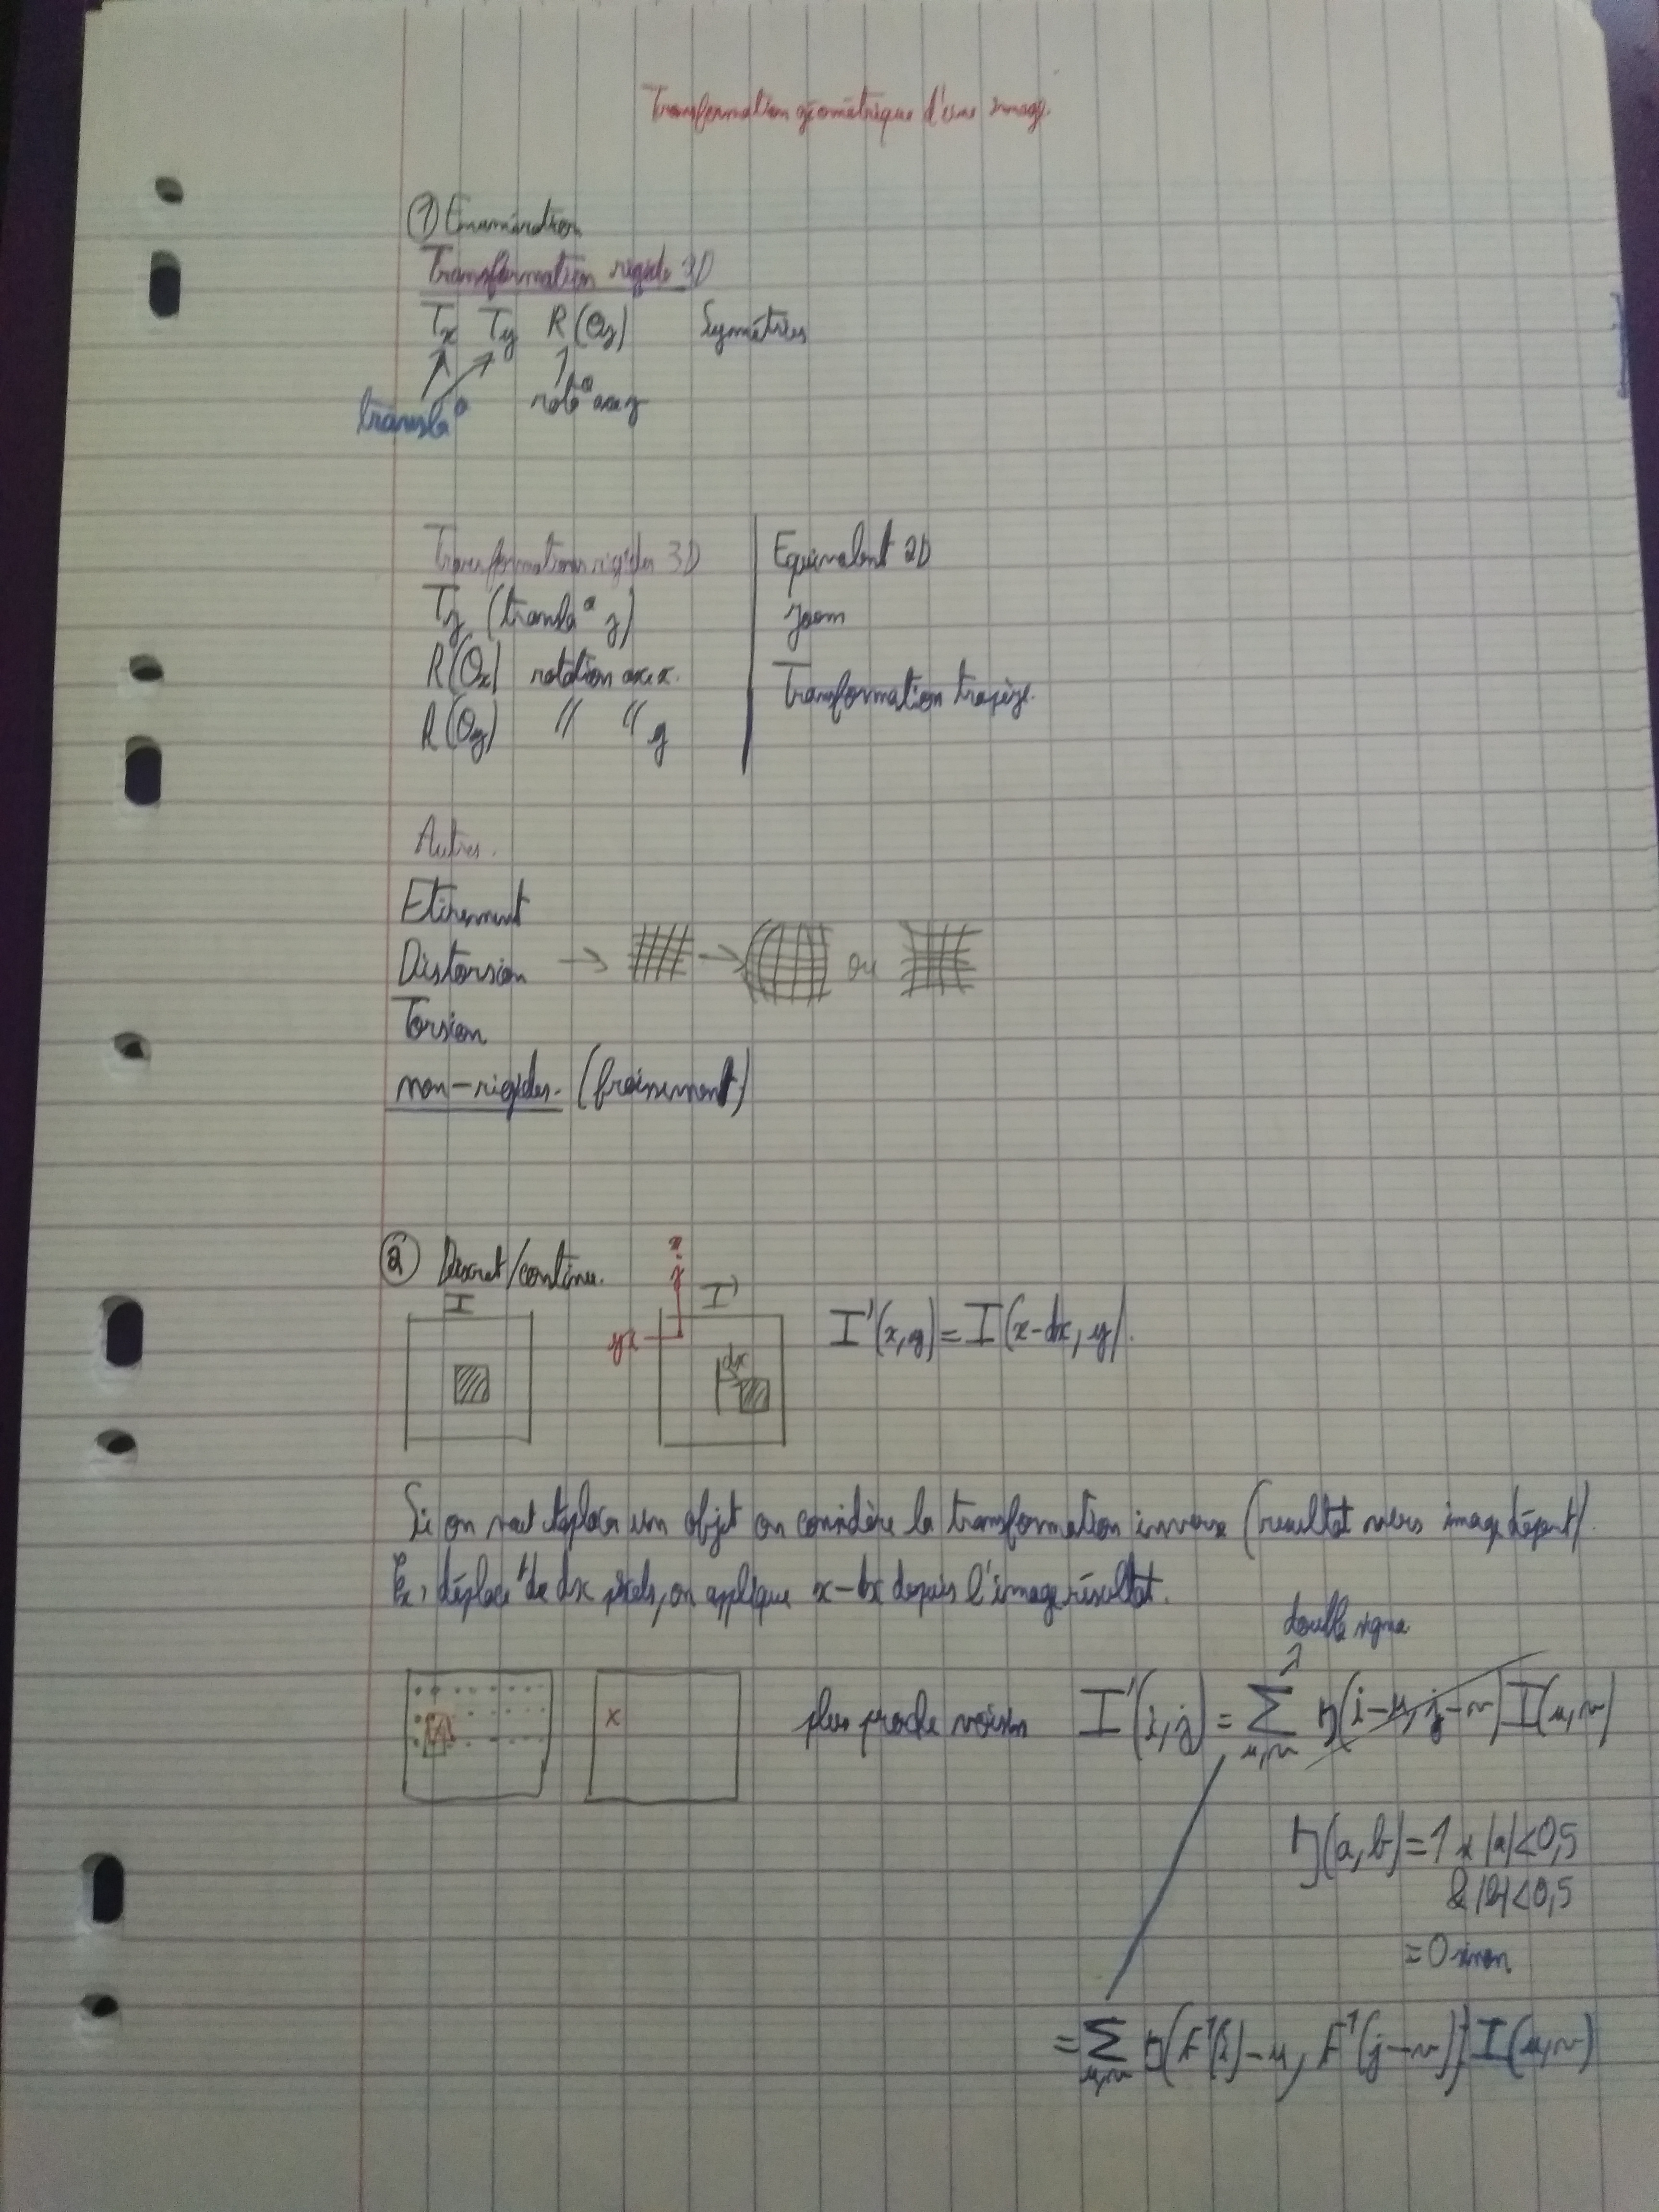 Transformation géométrique d'une image.
① Enumération
Transformation rigide 2D
Tx Ty R(θz) Symétries
transla° rota° axe z
Transformations rigides 3D | Equivalent 2D
Tz (transla° z) | zoom
R(θx) rotation axe x. | Transformation trapèze.
R(θy) " " y
Autres.
Etirement
Distorsion → → ou
Torsion
non-rigides. (froissement)
② Discret/continu.
I I'
I'(x,y) = I(x-dx, y).
dx
Si on veut déplacer un objet on considère la transformation inverse (résultat vers image départ).
Ex, déplacᵗ de dx pixels, on applique x-dx depuis l'image résultat.
double sigma
x plus proche voisin I'(i,j) = Σ η(i-u, j-v) I(u,v)
u,v
η(a,b) = 1 si |a|<0,5
& |b|<0,5
= 0 sinon
= Σ η(F⁻¹(i)-u, F⁻¹(j-v)) I(u,v)
u,v